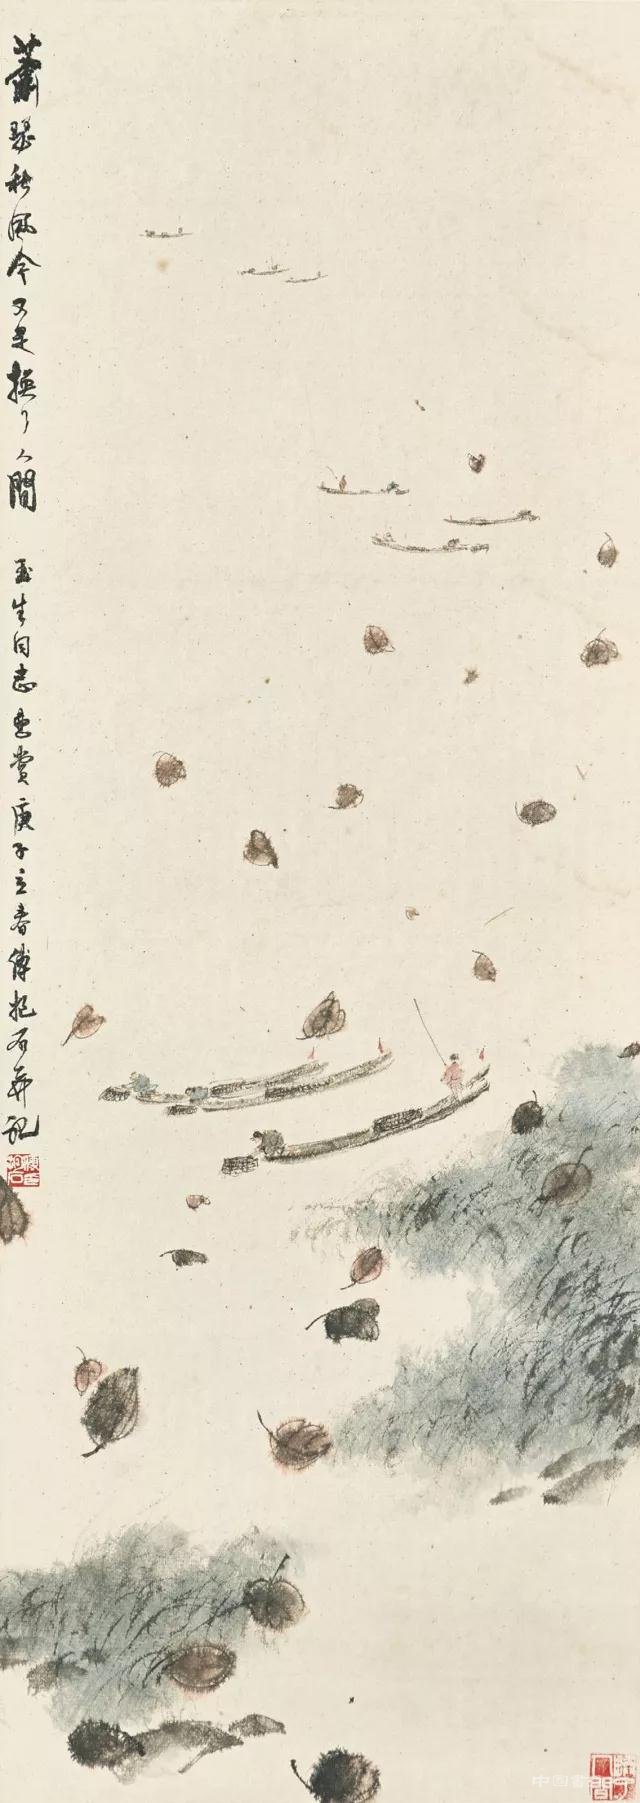 蕭瑟秋風今又是換了人間 玉生同志惠賞 庚子立春傅抱石并記